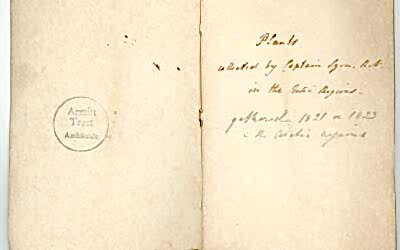 Armitt
Trust
Ambleside
Plants
collected by Captain Lyon. R.N.
in the Arctic Regions.
gathered 1821 or 1823
in the Arctic regions